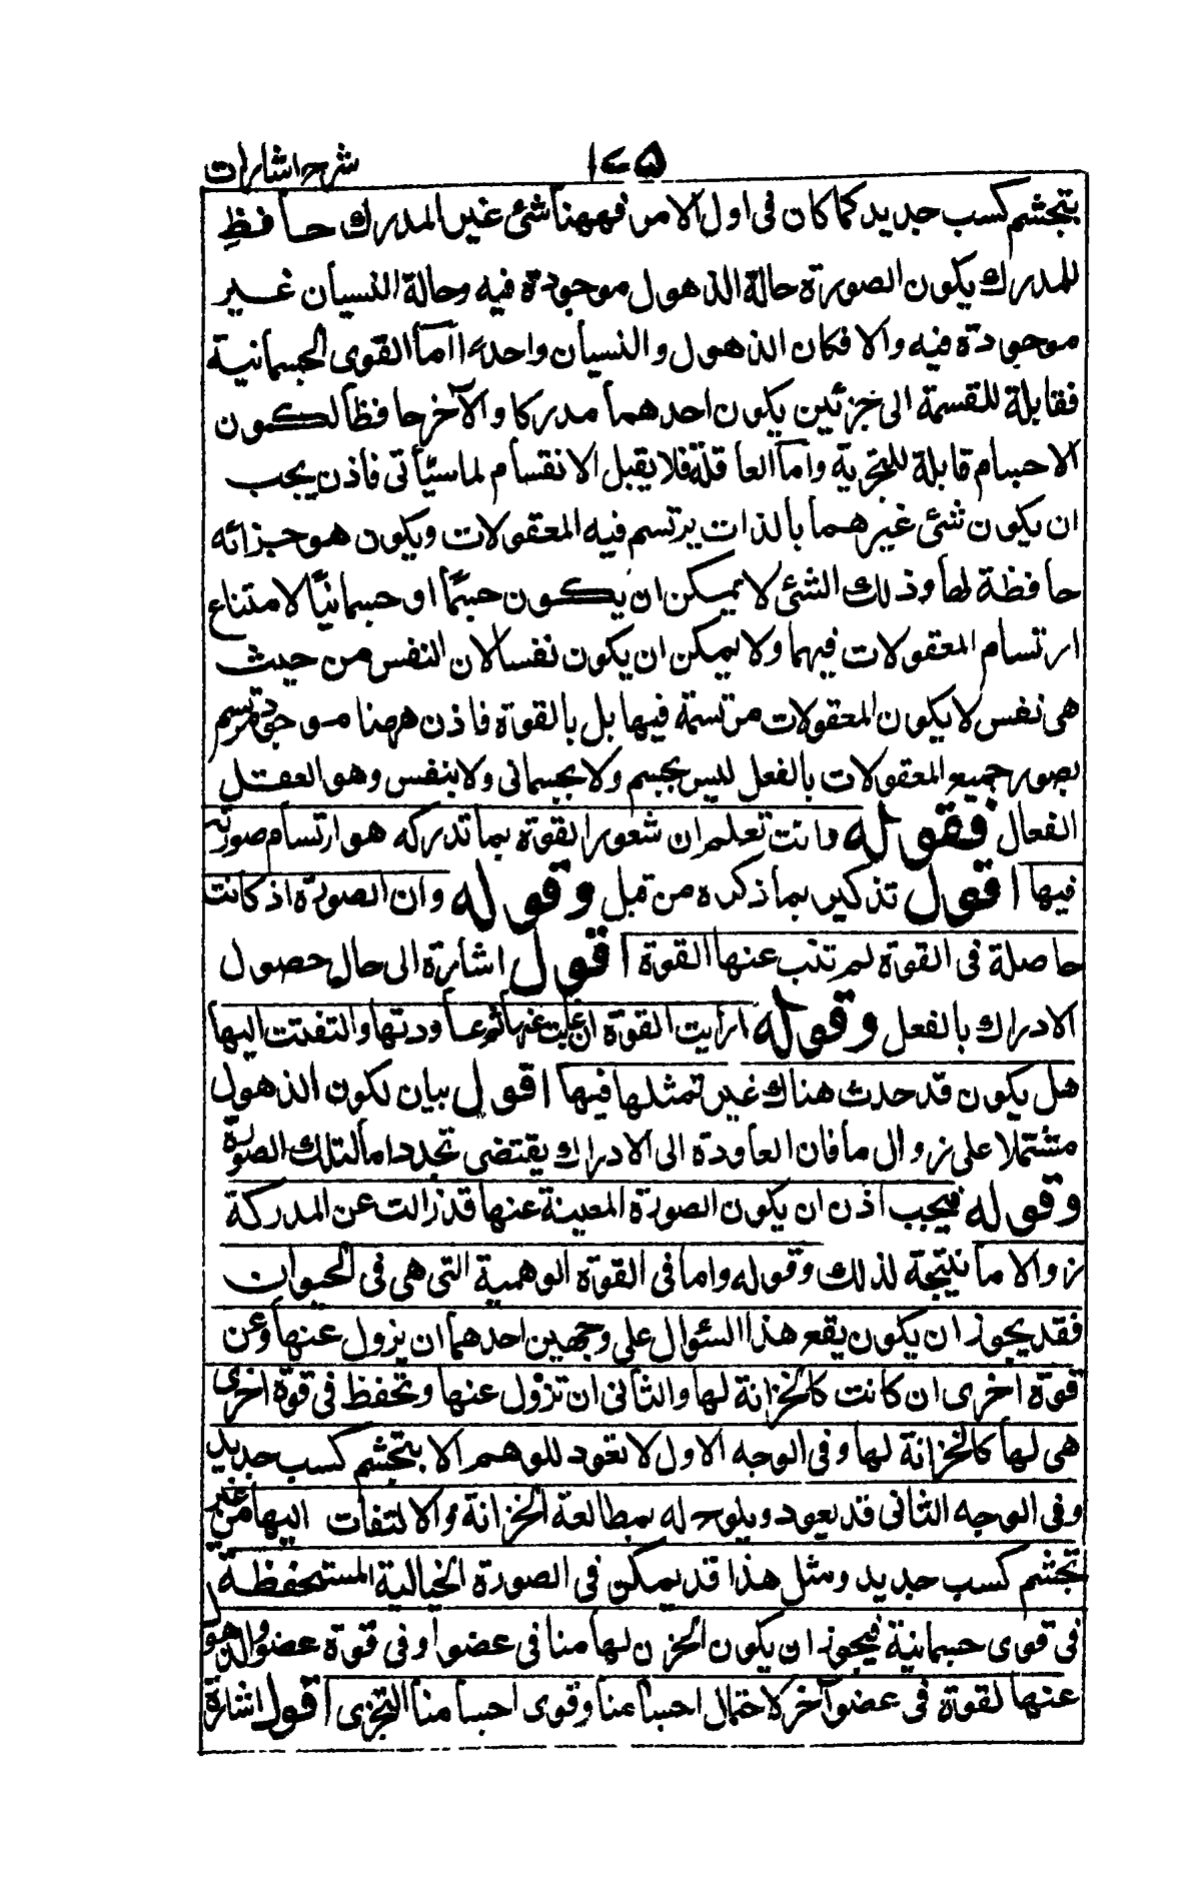 شرح اشارات
١٧٥
بتجشم كسب جديد كما كان فى اول الامر فههنا شئ غير المدرك حافظ
للمدرك يكون الصورة حالة الذهول موجودة فيه وحالة النسيان غير
موجودة فيه والا فكان الذهول والنسيان واحدا اما القوى الجسمانية
فقابلة للقسمة الى جزئين يكون احدهما مدركا والآخر حافظا لكون
الاجسام قابلة للتجزية واما العاقلة فلا يقبل الانقسام لما سيأتى فاذن يجب
ان يكون شئ غيرهما بالذات يرتسم فيه المعقولات ويكون هو خزانه
حافظة لها وذلك الشئ لا يمكن ان يكون جسما او جسمانيا لامتناع
ارتسام المعقولات فيهما ولا يمكن ان يكون نفسا لان النفس من حيث
هى نفس لا يكون المعقولات مرتسمة فيها بل بالقوة فاذن ههنا موجود مرتسم
بصور جميع المعقولات بالفعل ليس بجسم ولا بجسمانى ولا بنفس وهو العقل
الفعال فقوله وانت تعلم ان شعور القوة بما تدركه هو ارتسام صورته
فيها اقول تذكير بما ذكره من قبل وقوله وان الصورة اذ كانت
حاصلة فى القوة لم تغب عنها القوة اقول اشارة الى حال حصول
الادراك بالفعل وقوله ارأيت القوة ان غابت عنها ثم عاودتها والتفتت اليها
هل يكون قد حدث هناك غير تمثلها فيها اقول بيان لكون الذهول
مشتملا على زوال ما فان العاودة الى الادراك يقتضى تجدد اما لتلك الصورة
وقوله فيجب اذن ان يكون الصورة المعينة عنها قد زالت عن المدركة
زوالا ما نتيجة لذلك وقوله واما فى القوة الوهمية التى هى فى الحيوان
فقد يجوز ان يكون يقع هذا السئوال على وجهين احدهما ان يزول عنها وعن
قوة اخرى ان كانت كالخزانة لها والثانى ان تزول عنها وتحفظ فى قوة اخرى
هى لها كالخزانة لها وفى الوجه الاول لا تعود للوهم الا بتجشم كسب جديد
وفى الوجه الثانى قد يعود ويلوح له بمطالعة الخزانة والالتفات اليها من غير
تجشم كسب جديد ومثل هذا قد يمكن فى الصورة الخيالية المستحفظة
فى قوى جسمانية فيجوز ان يكون الخزن لها منا فى عضو او فى قوة عضو والذهو
عنها لقوة فى عضو آخر لاحتمال اجسامنا وقوى اجسامنا التجزى اقول اشارة